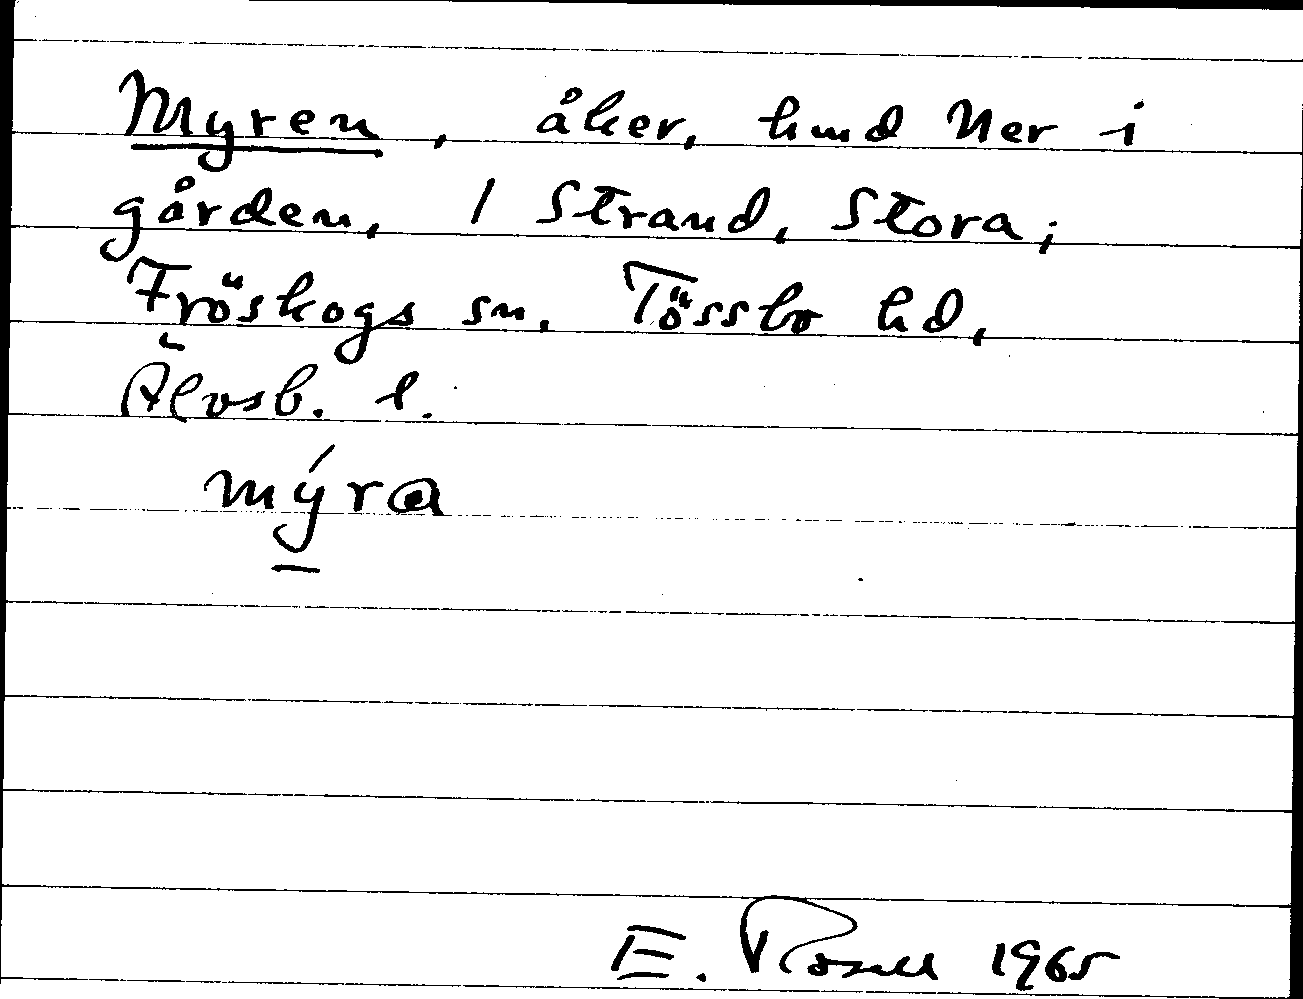 Myren, åker, hmd Ner i
gården, 1 Strand, Stora;
Fröskogs sn. Tössbo hd,
Älvsb. l.
mýra
E. Rosell 1965